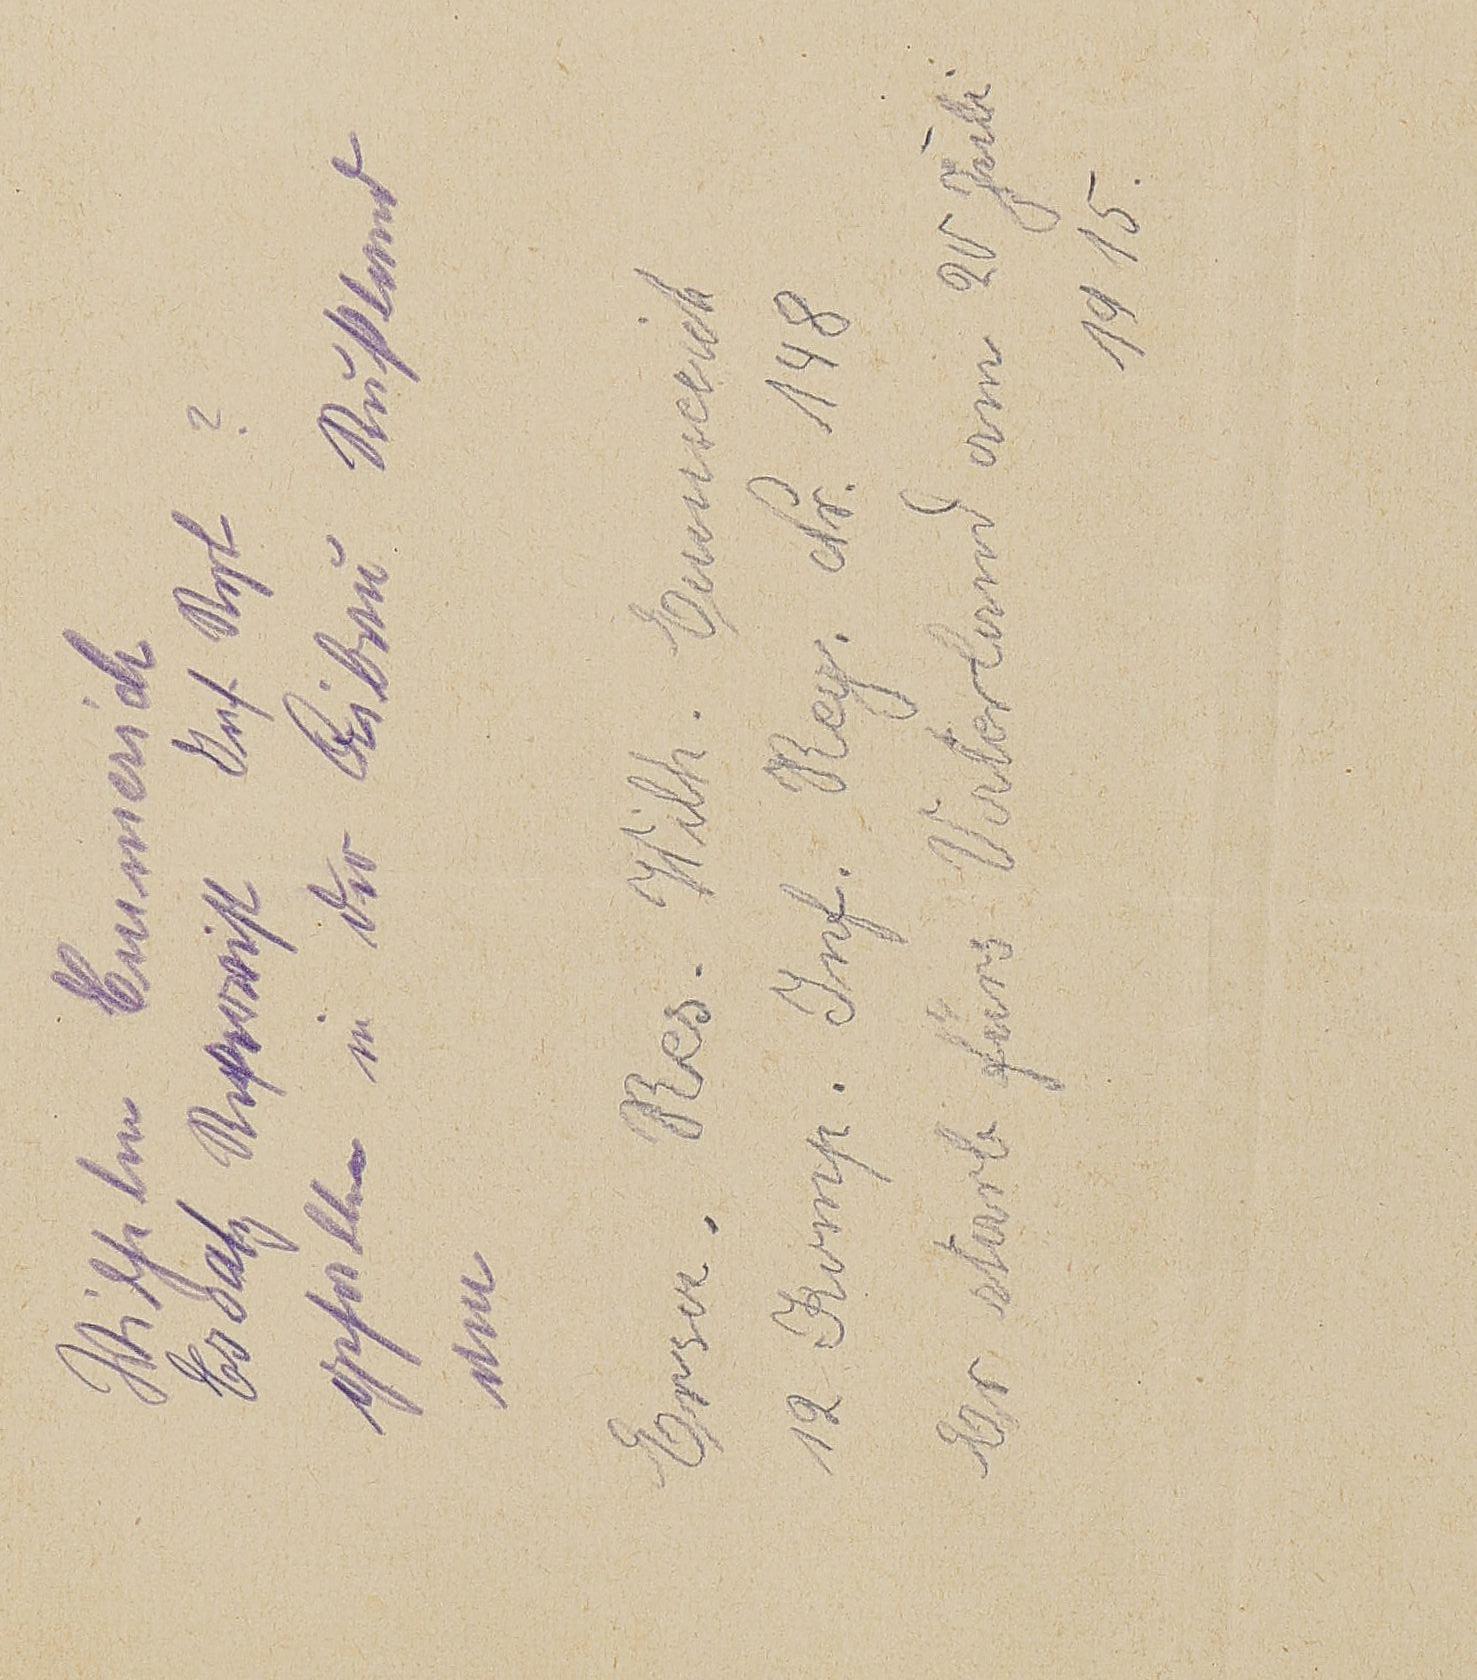 Wilhelm Emmerich
Ersatz Reservist Inf. Regt ?
gefallen in der Libau Rußland
am
Ersa. Res. Wilh. Emmerich
12 Komp. Inf. Reg. Nr. 148
Er starb fürs Vaterland am 20 Juli
1915.